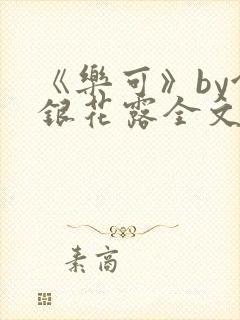 《樂可》by
銀花露全文
素高